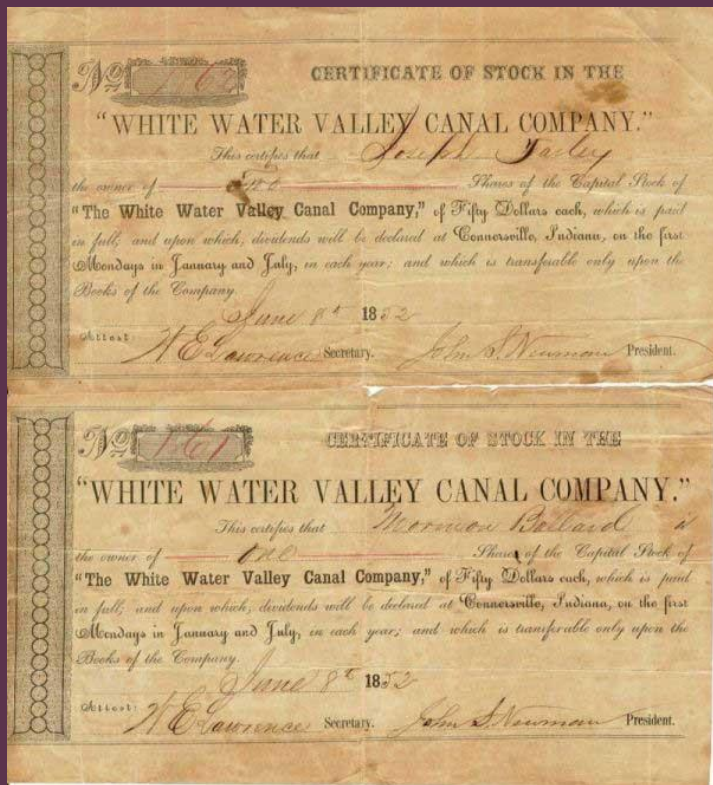 No
CERTIFICATE OF STOCK IN THE
"WHITE WATER VALLEY CANAL COMPANY."
This certifies that Joseph
the owner of Two Shares of the Capital Stock of
"The White Water Valley Canal Company," of Fifty Dollars each, which is paid
in full; and upon which, dividends will be declared at Connersville, Indiana, on the first
Mondays in January and July, in each year; and which is transferable only upon the
Books of the Company.
June 8th 1852
Attest: W E Lawrence Secretary. John S. Newman President.
No
CERTIFICATE OF STOCK IN THE
"WHITE WATER VALLEY CANAL COMPANY."
This certifies that is
the owner of One Share of the Capital Stock of
"The White Water Valley Canal Company," of Fifty Dollars each, which is paid
in full; and upon which, dividends will be declared at Connersville, Indiana, on the first
Mondays in January and July, in each year; and which is transferable only upon the
Books of the Company.
June 8th 1852
Attest: W E Lawrence Secretary. John S. Newman President.